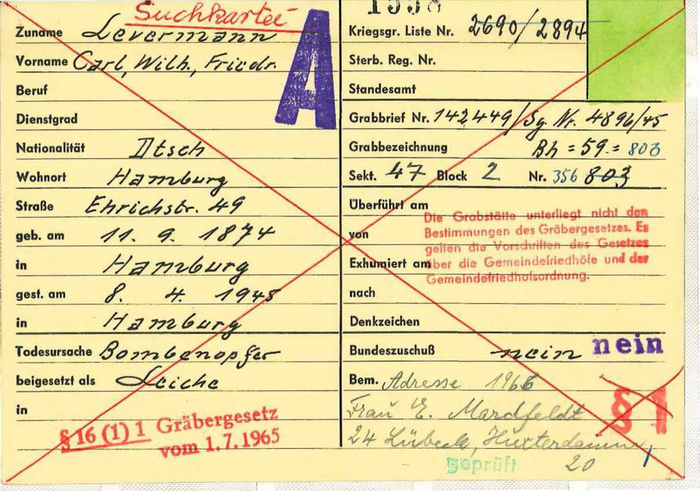 Suchkartei
1558
A
Zuname Levermann
Vorname Carl, Wilh, Friedr.
Beruf
Dienstgrad
Nationalität Dtsch
Wohnort Hamburg
Straße Ehrichstr. 49
geb. am 11. 9. 1874
in Hamburg
gest. am 8. 4. 1945
in Hamburg
Todesursache Bombenopfer
beigesetzt als Leiche
in
§ 16 (1) 1 Gräbergesetz
vom 1.7.1965
Kriegsgr. Liste Nr. 2690/2894
Sterb. Reg. Nr.
Standesamt
Grabbrief Nr. 142449/Sg Nr. 4896/45
Grabbezeichnung Bh = 59 = 803
Sekt. 47 Block 2 Nr. 356 803
Überführt am
von
Die Grabstätte unterliegt nicht den
Bestimmungen des Gräbergesetzes. Es
gelten die Vorschriften des Gesetzes
über die Gemeindefriedhöfe und der
Gemeindefriedhofsordnung.
Exhumiert am
nach
Denkzeichen
Bundeszuschuß nein nein
Bem. Adresse 1966
Frau E. Mardfeldt
24 Lübeck, Hüxterdamm
20
§ 1
geprüft